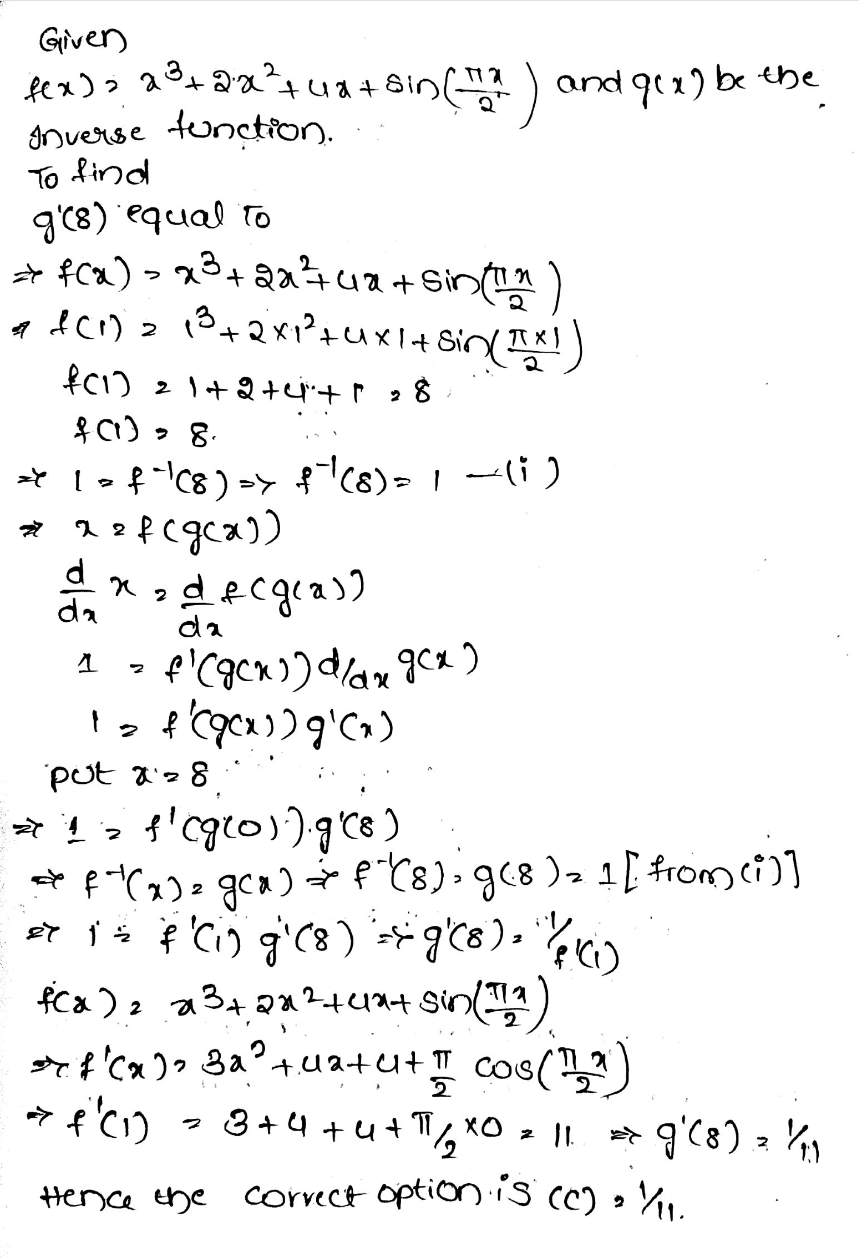 Given
f(x) = x³+2x²+4x+sin(πx/2) and g(x) be the
Inverse function.
To find
g'(8) equal to
⇒ f(x) = x³+2x²+4x+sin(πx/2)
⇒ f(1) = 1³+2×1²+4×1+sin(π×1/2)
f(1) = 1+2+4+1 = 8
f(1) = 8.
⇒ 1 = f⁻¹(8) ⇒ f⁻¹(8) = 1 —(i)
⇒ x = f(g(x))
d/dx x = d/dx f(g(x))
1 = f'(g(x)) d/dx g(x)
1 = f'(g(x)) g'(x)
put x = 8
⇒ 1 = f'(g(0)).g'(8)
⇒ f⁻¹(x) = g(x) ⇒ f⁻¹(8) = g(8) = 1 [from (i)]
⇒ 1 = f'(1) g'(8) ⇒ g'(8) = 1/f'(1)
f(x) = x³+2x²+4x+sin(πx/2)
⇒ f'(x) = 3x²+4x+4+π/2 cos(πx/2)
⇒ f'(1) = 3+4+4+π/2 ×0 = 11 ⇒ g'(8) = 1/11
Hence the correct option is (C) = 1/11.